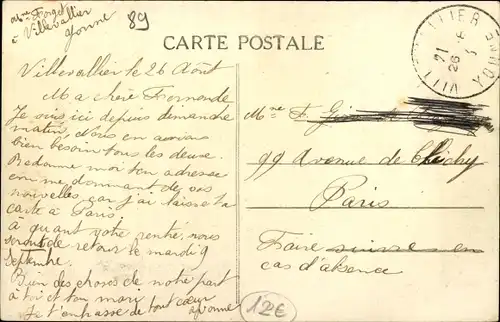 Mme Forget
à Villevallier
Yonne
89
CARTE POSTALE
VILLEVALLIER
YONNE
21
26
Villevallier le 26 Août
Ma chère Fernande
Je suis ici depuis dimanche
matin, Nous en avions
bien besoin tous les deux.
Redonne moi ton adresse
en me donnant de vos
nouvelles, car j'ai laissé ta
carte à Paris.
à quant votre rentré, nous
seront de retour le mardi 9
Septembre.
Bien des choses de notre part
à toi et ton mari
Je t'embrasse de tout cœur
Yvonne
Mme F.
99 Avenue de Clichy
Paris
Faire suivre en
cas d'absence
12€